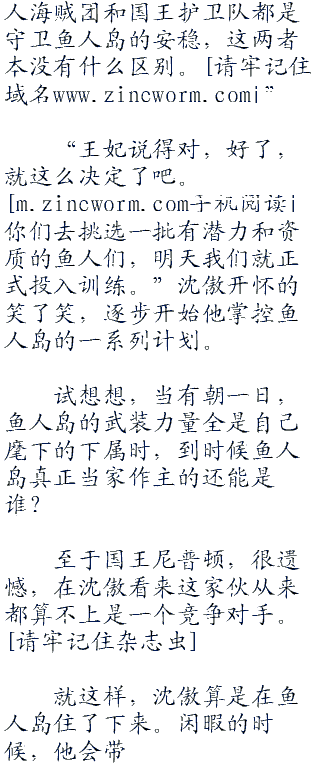 人海贼团和国王护卫队都是
守卫鱼人岛的安稳，这两者
本没有什么区别。[请牢记住
域名www.zincworm.com|”
“王妃说得对，好了，
就这么决定了吧。
[m.zincworm.com手机阅读|
你们去挑选一批有潜力和资
质的鱼人们，明天我们就正
式投入训练。”沈傲开怀的
笑了笑，逐步开始他掌控鱼
人岛的一系列计划。
试想想，当有朝一日，
鱼人岛的武装力量全是自己
麾下的下属时，到时候鱼人
岛真正当家作主的还能是
谁？
至于国王尼普顿，很遗
憾，在沈傲看来这家伙从来
都算不上是一个竞争对手。
[请牢记住杂志虫]
就这样，沈傲算是在鱼
人岛住了下来。闲暇的时
候，他会带